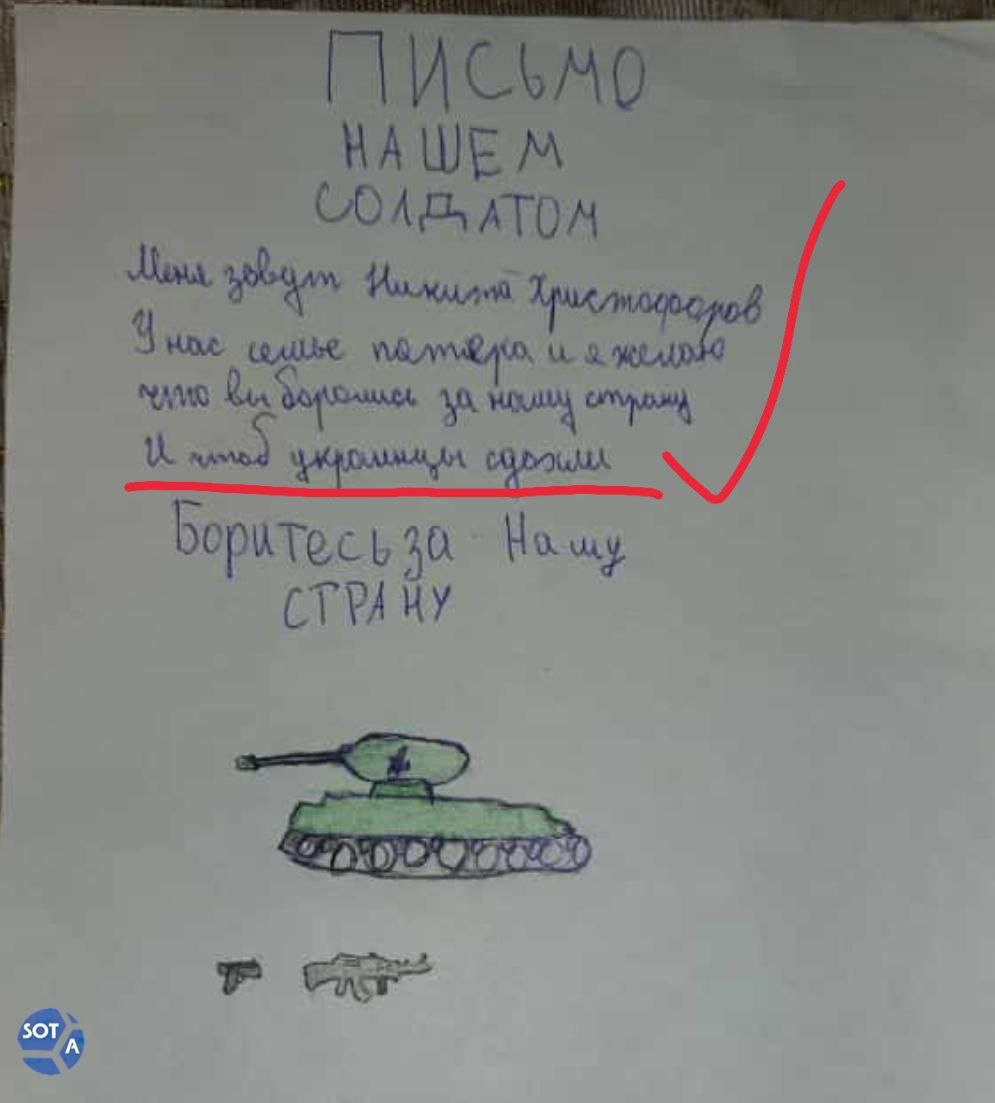 ПИСЬМО
НАШЕМ
СОЛДАТОМ
Меня зовут Никита Христофоров
У нас семье пятера и я желаю
что вы боролись за нашу страну
И чтоб украинцы сдохли
Боритесь за Нашу
СТРАНУ
SOTA